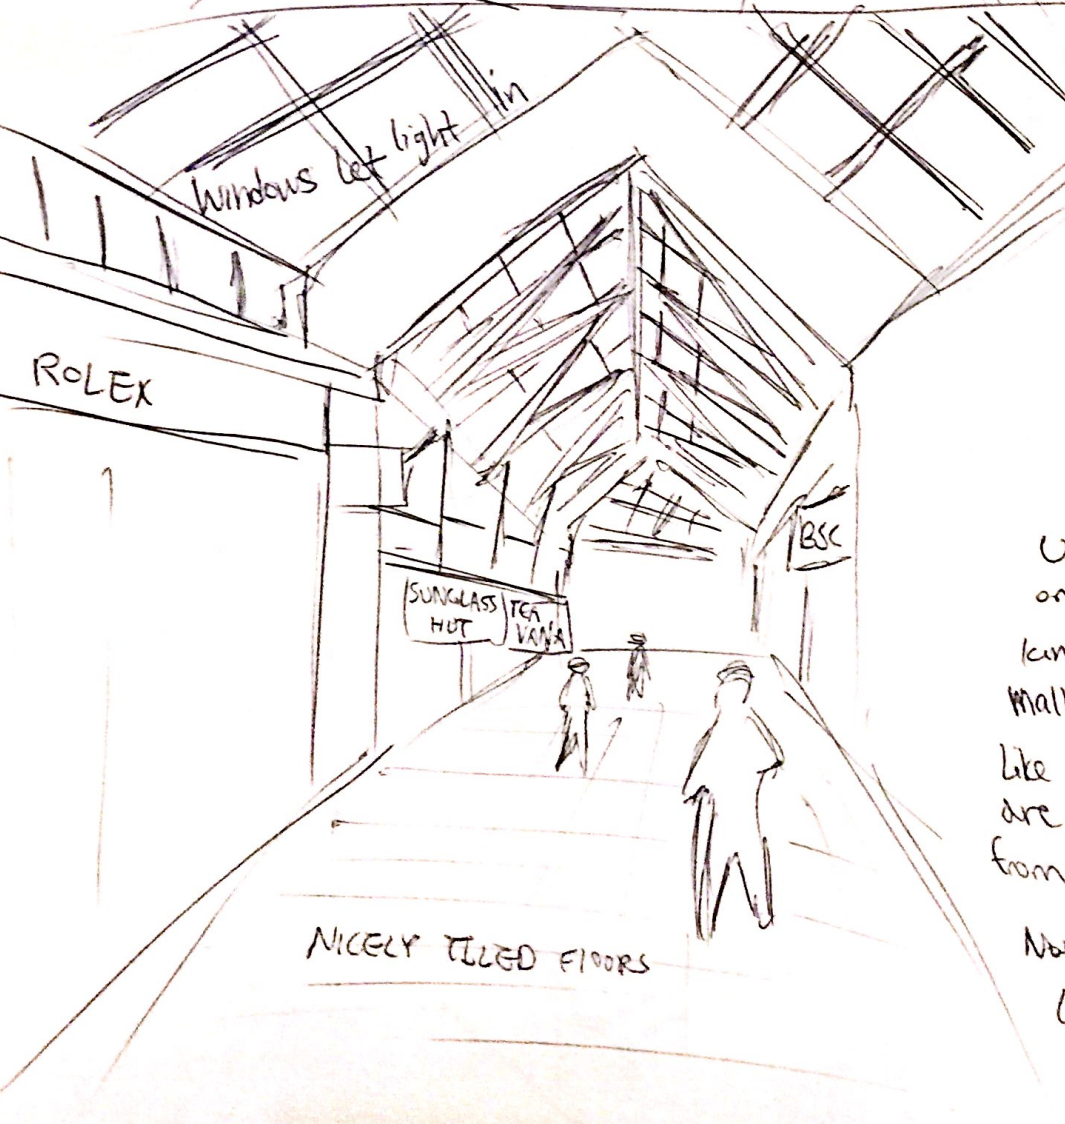 Windows let light in
ROLEX
BSC
SUNGLASS
HUT
TEA
VANA
NICELY TILED FLOORS
Mall
Like
are
from